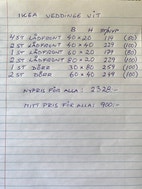 IKEA VEDDINGE VIT
B H NYPRIS
4 ST LÅDFRONT 40 x 20 119 (80)
2 ST LÅDFRONT 40 x 40 229 (100)
1 ST LÅDFRONT 60 x 20 179 (80)
2 ST LÅDFRONT 80 x 20 229 (100)
1 ST DÖRR 30 x 80 259 (100)
2 ST DÖRR 60 x 40 249 (100)
NYPRIS FÖR ALLA : 2328:-
MITT PRIS FÖR ALLA: 900:-